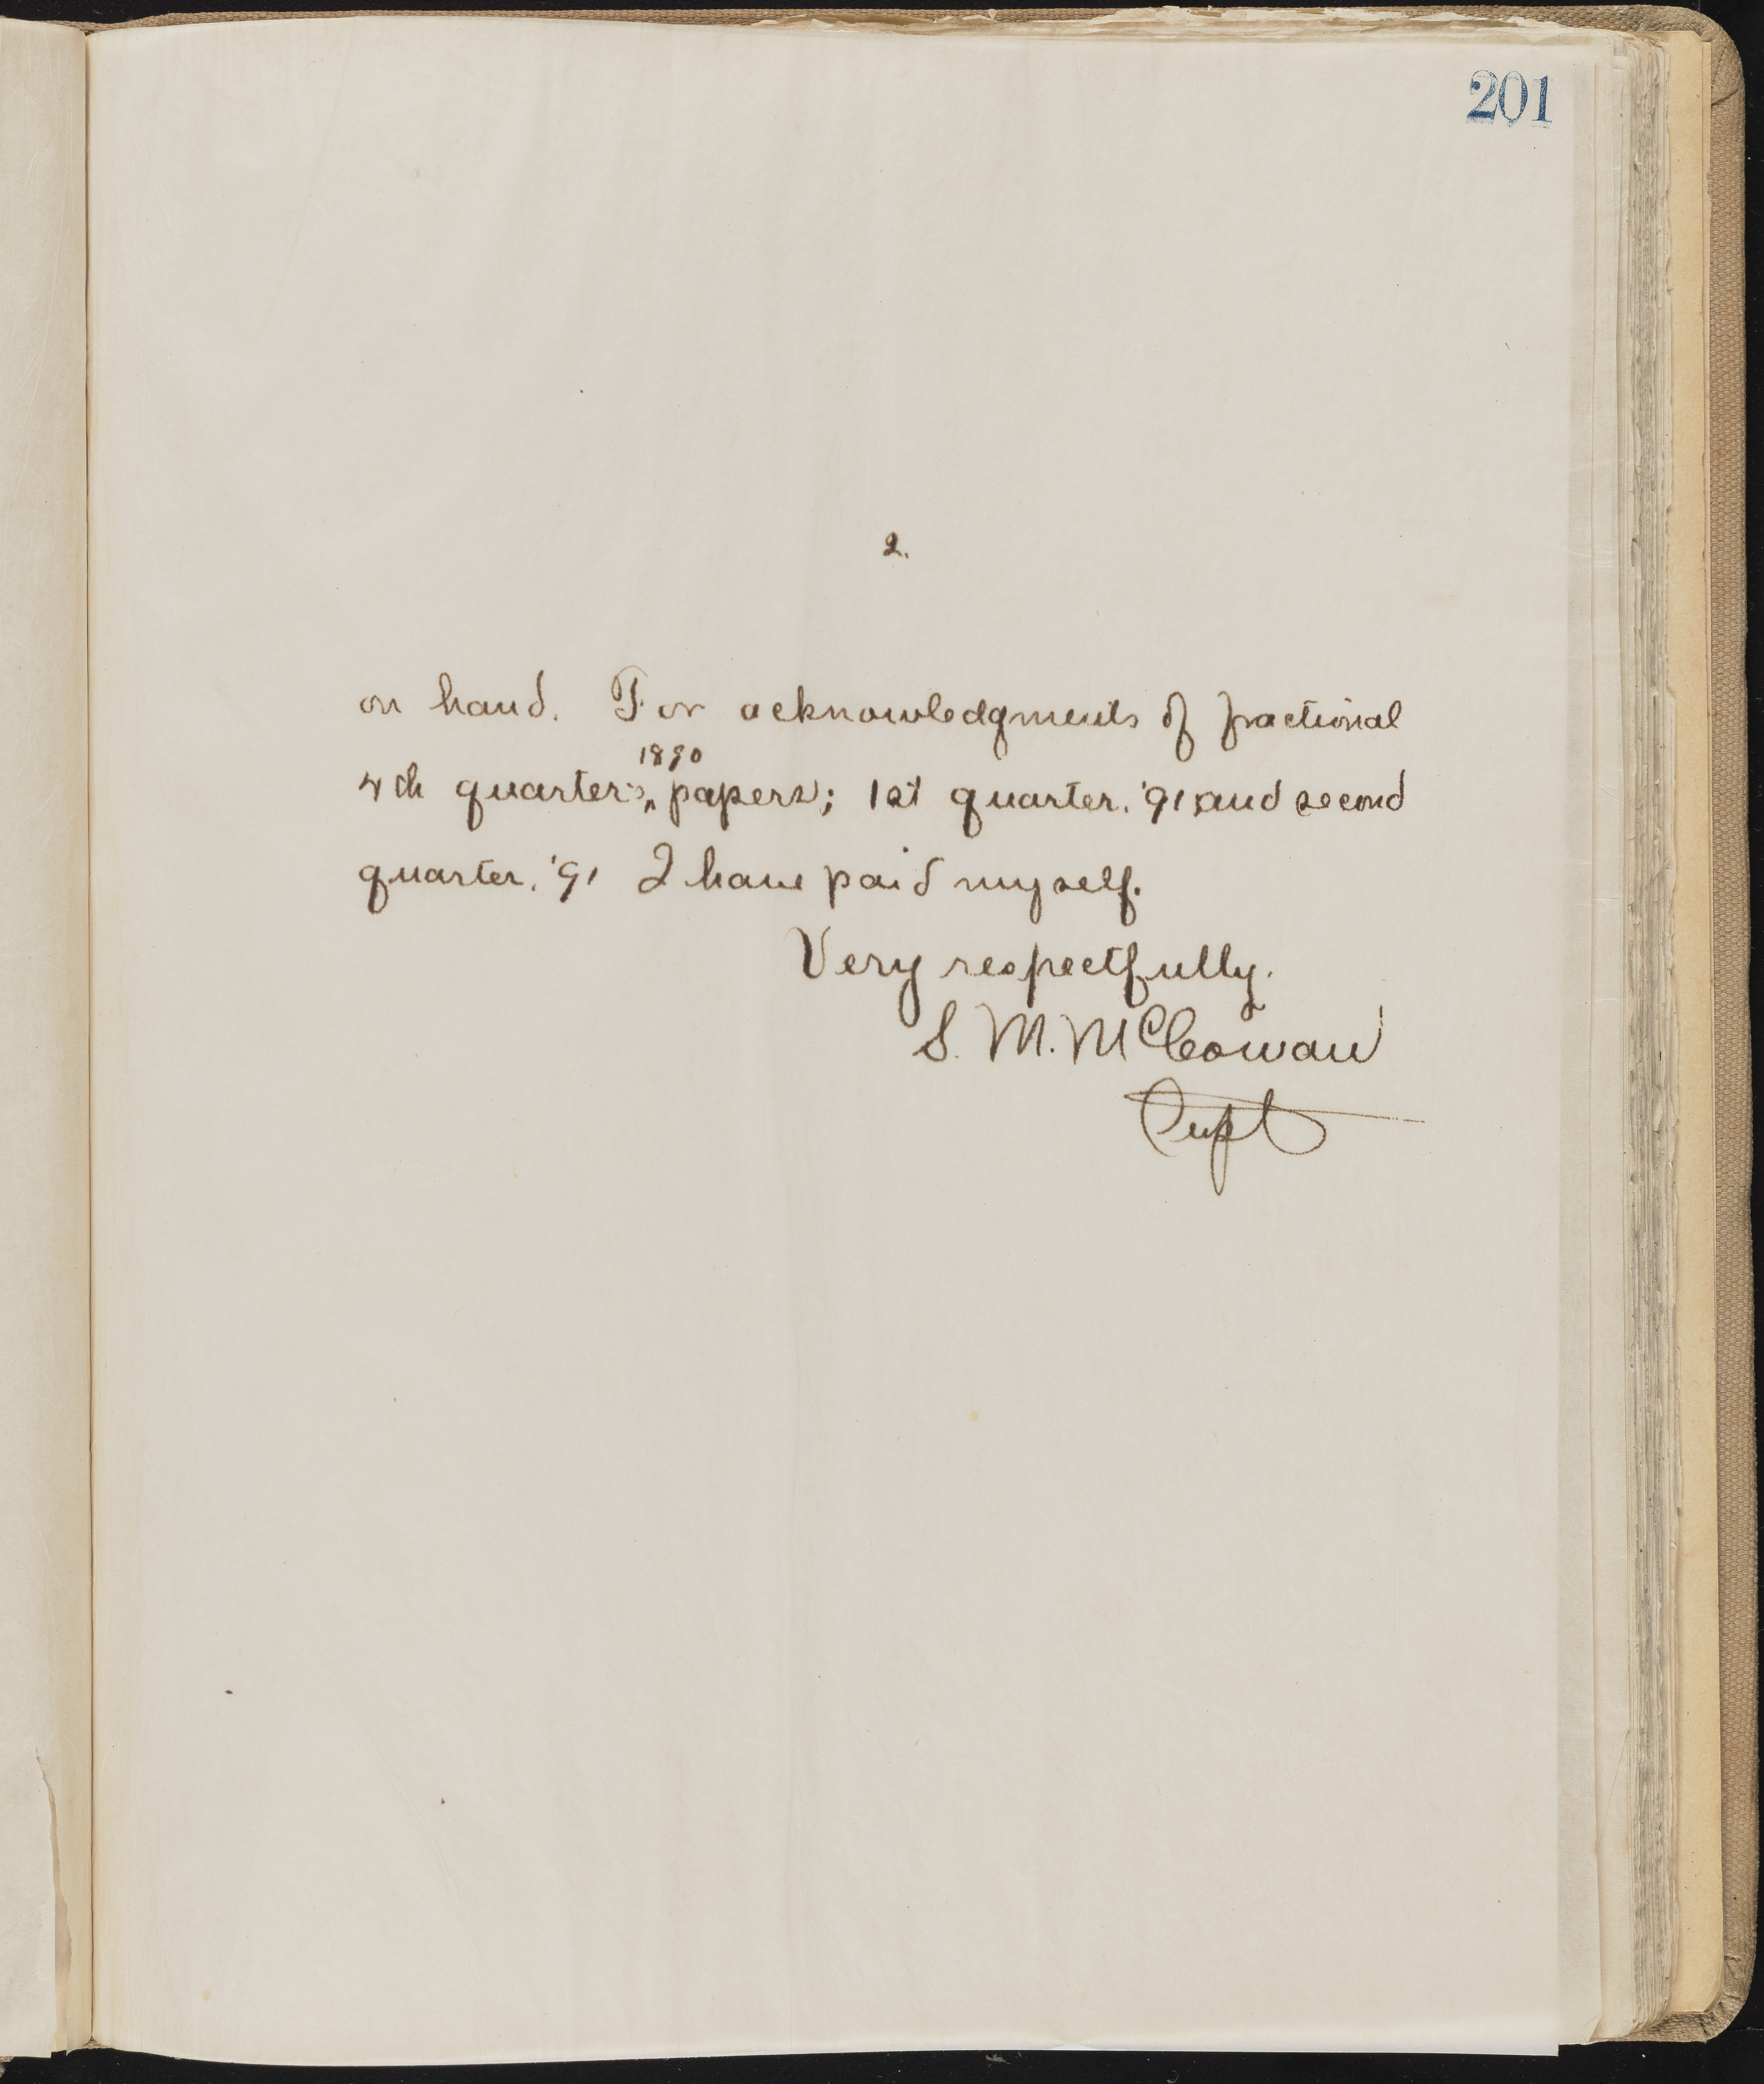 201
2.
on hand. For acknowledgments of fractional
1890
4th quarter's ^ papers; 1st quarter. '91 and second
quarter. '91 I have paid myself.
Very respectfully.
S. M. McCowan
Supt